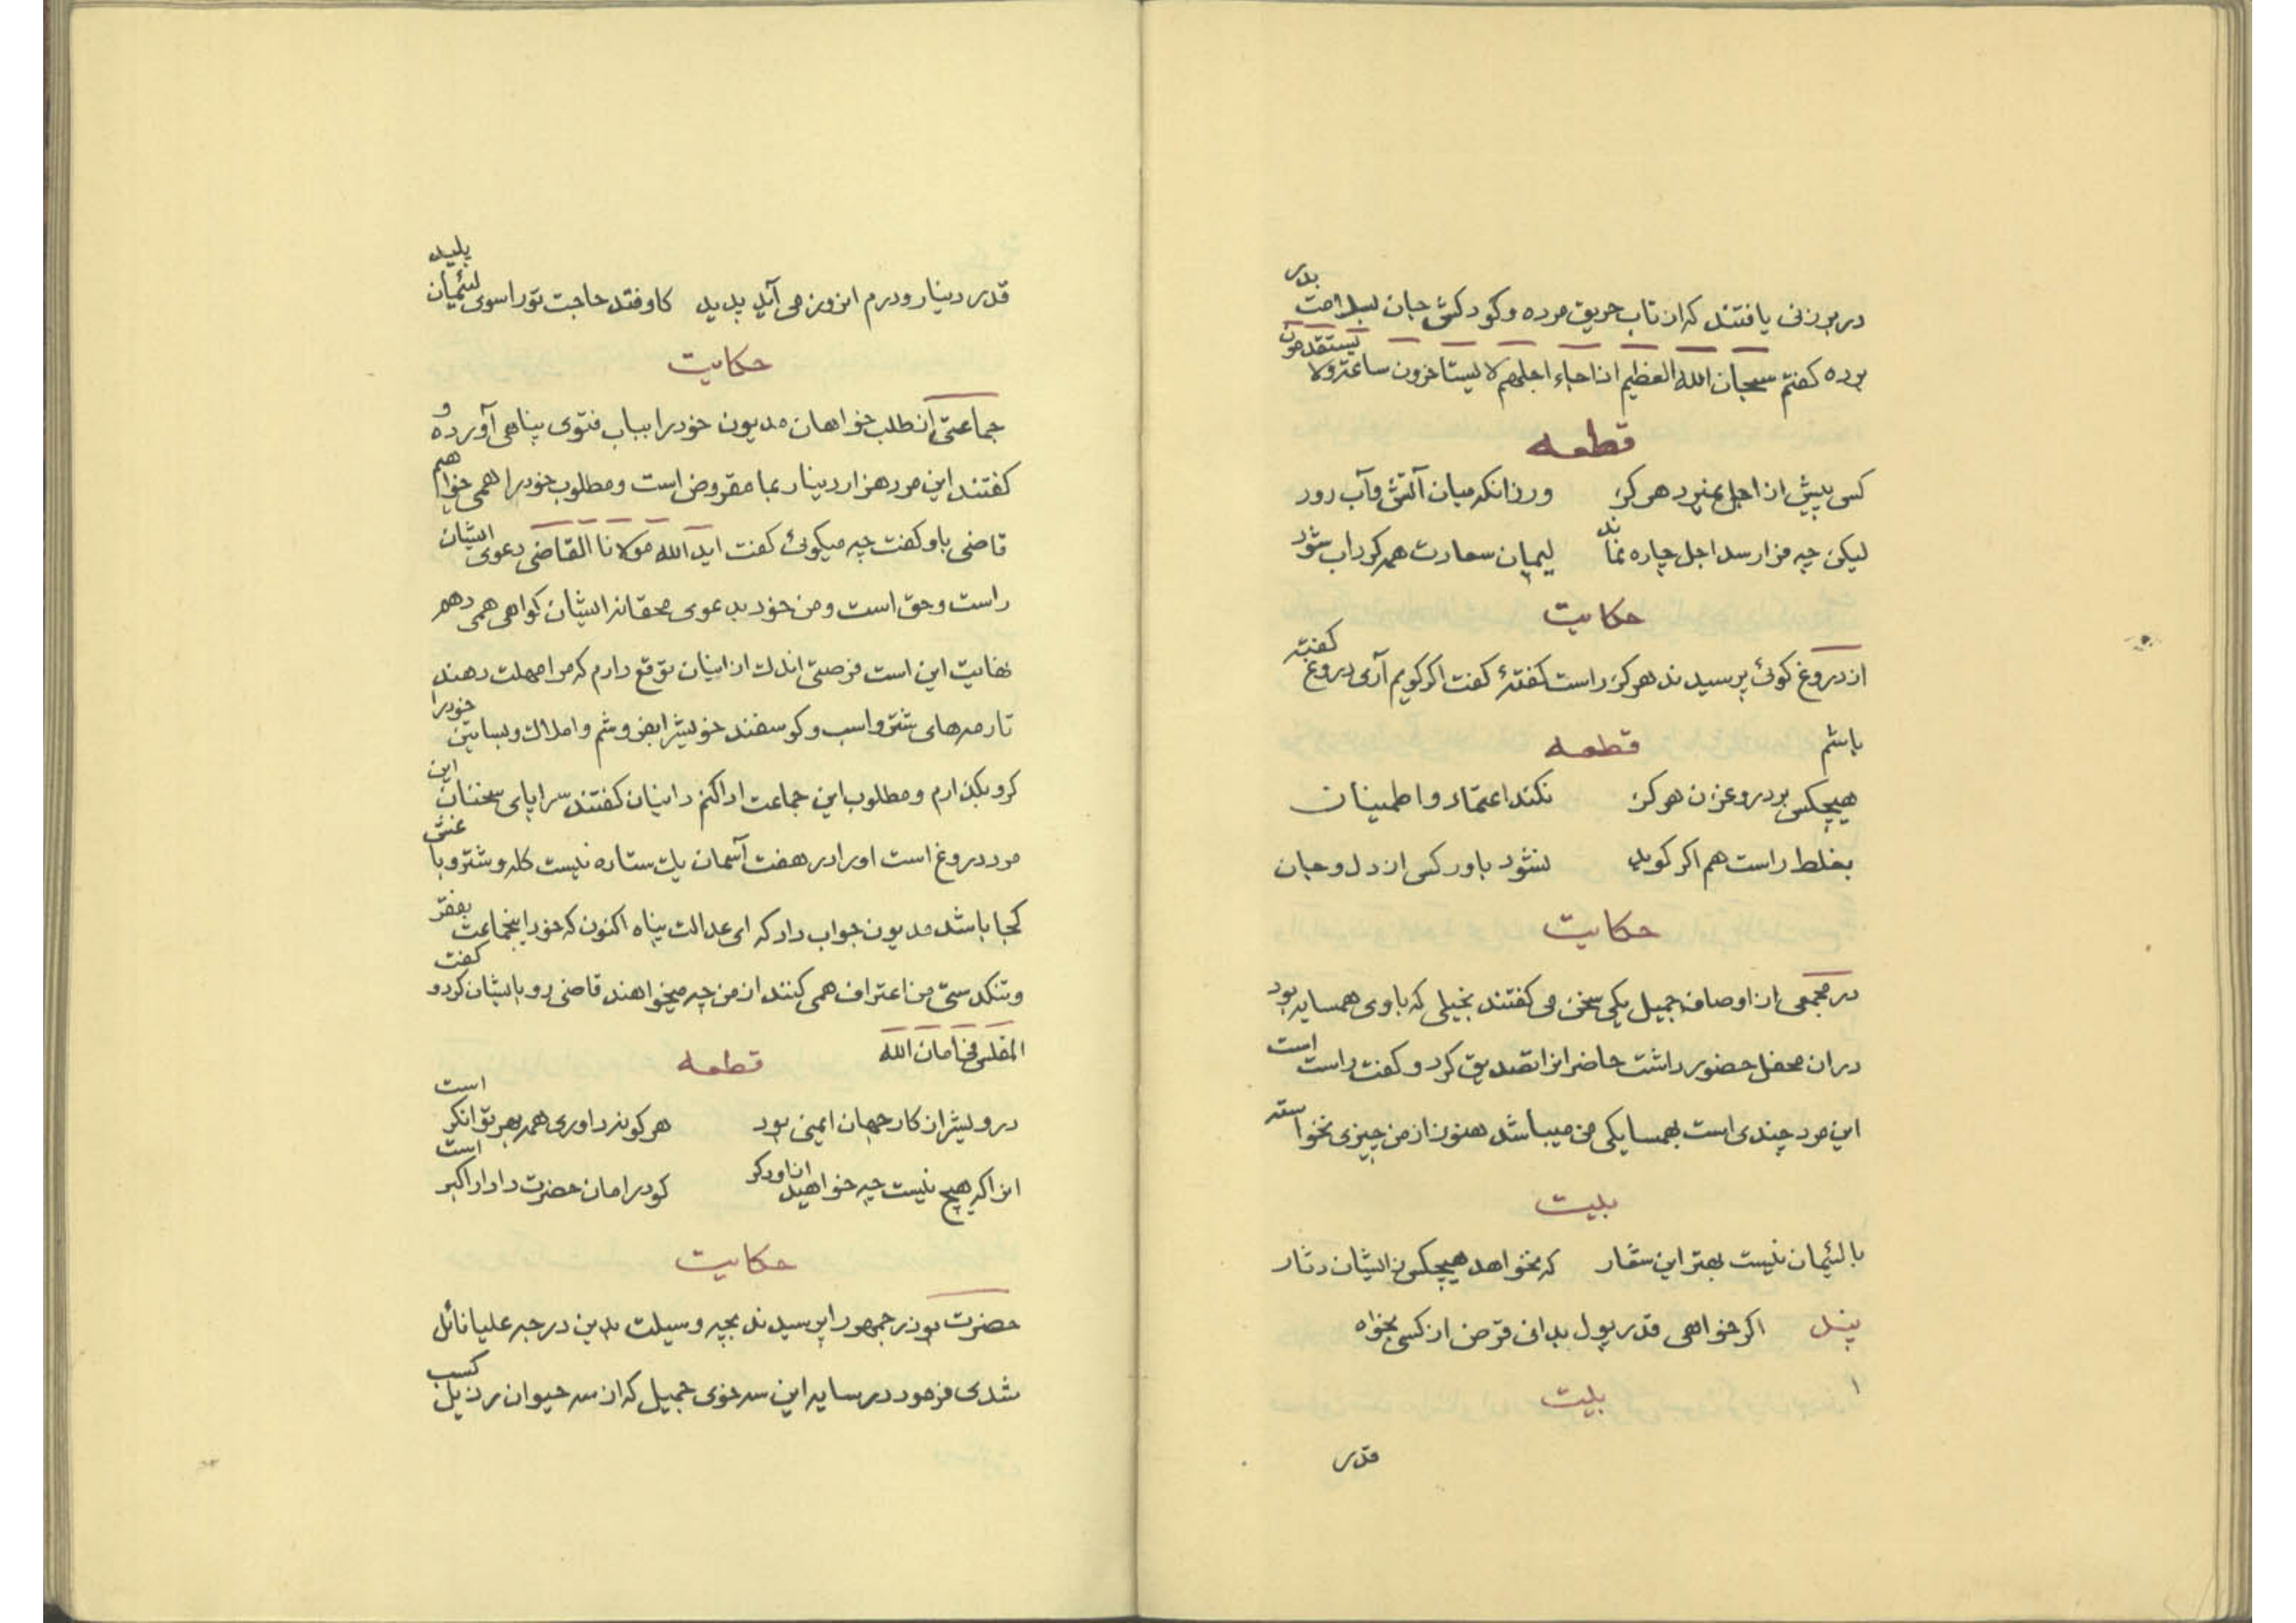 در برزنی یافتند که از تاب حریق مرده و کودکش جان بسلامت بدر
برده کفتم سبحان الله العظیم اذا جاء اجلهم لا یستاخرون ساعة ولا یستقدمون
قطعه
کسی پیش از اجل بمیرد هرکز ورزانکه میان آتش و آب رود
لیکن چه فرا رسد اجل چاره نماند
حکایت
از دروغ کوئی پرسیدند هرکز راست کفتهٔ کفت اکر کویم آری دروغ کفته
باشم
قطعه
هیچکس بر دروغزن هرکز نکند اعتماد و اطمینان
بغلط راست هم اکر کوید نشود باور کس از دل و جان
حکایت
در مجمعی از اوصاف جمیل یکی سخن می کفتند بخیلی که باوی همسایه بود
در ان محفل حضور داشت حاضرانرا تصدیق کرد و کفت راست است
این مرد چندی است بهمسایکی من میباشد هنوز از من چیزی نخواسته
بیت
با لئیمان نیست بهتر این شعار که نخواهد هیچکس زایشان دثار
پند اکر خواهی قدر پول بدانی قرض از کسی بخواه
بیت
قدر
قدر دینار و درم انروز می آید پدید کاوفتد حاجت تو را سوی لئیمان پلید
حکایت
جماعتی از طلب خواهان مدیون خود را بباب فتوی پناهی آورده و
کفتند این مرد هزار دینار بما مقروض است و مطلوب خود را همی خواهیم
قاضی باو کفت چه میکوئی کفت اید الله مولانا القاضی دعوی ایشان
راست و حق است و من خود بدعوی محقانه ایشان کواهی همی دهم
نهایت این است فرصتی اندک از اینان توقع دارم که مرا مهلت دهند
تا رمه های شتر و اسب و کوسفند خویشرا بفروشم و املاک و بساتین خود را
کرو بکذارم و مطلوب این جماعت ادا کنم داینان کفتند سراپای سخنان این
مرد دروغ است او را در هفت آسمان یک ستاره نیست کله و شتر و باغش
کجا باشد مدیون جواب داد که ای عدالت پناه اکنون که خود اینجماعت بفقر
و تنکدستی من اعتراف همی کنند از من چه میخواهند قاضی رو بایشان کرد و کفت
المفلس فی امان الله
قطعه
درویش از کار جهان ایمن بود هر کونه داوری همه بهر توانکر است
انرا که هیچ نیست چه خواهید از او دکر کو در امان حضرت دادار اکبر است
حکایت
حضرت بوذرجمهور را پرسیدند بچه وسیلت بدین درجه علیا نائل
شدی فرمود در سایه این سه خوی جمیل که از سه حیوان رذیل کسب